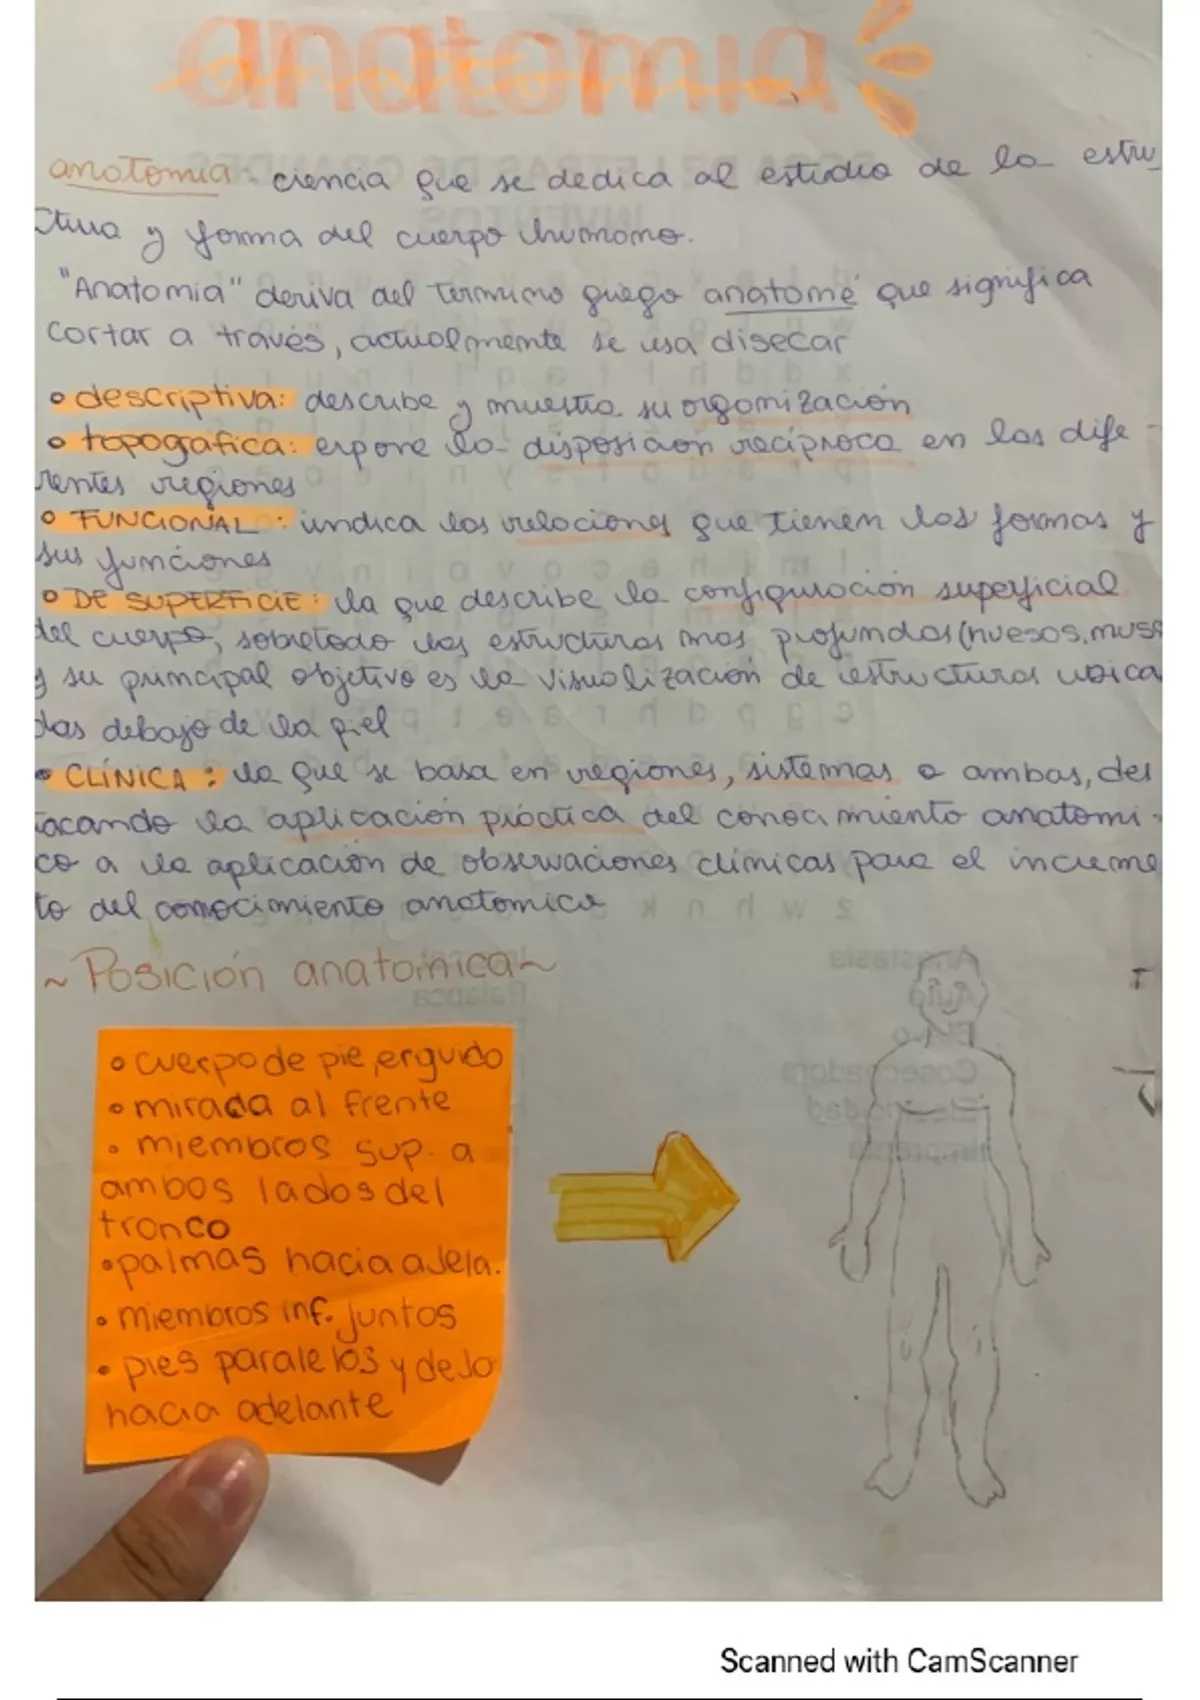 anatomia
anatomia: ciencia que se dedica al estudio de la estru
ctura y forma del cuerpo humano.
"Anatomia" deriva del termino griego anatomé que significa
cortar a través, actualmente se usa disecar
• descriptiva: describe y muestra su organización
• topografica: expone la disposicion reciproca en las dife-
rentes regiones
• FUNCIONAL: indica las relaciones que tienen las formas y
sus funciones
• DE SUPERFICIE: la que describe la configuración superficial
del cuerpo, sobretodo las estructuras mas profundas (huesos, musc
y su principal objetivo es la visualización de estructuras ubica
das debajo de la piel
• CLÍNICA: la que se basa en regiones, sistemas o ambas, des
tacando la aplicación práctica del conocimiento anatomi-
co a la aplicación de observaciones clinicas para el increme
to del conocimiento anatomico
~Posición anatomica~
• cuerpo de pie, erguido
• mirada al frente
• miembros sup. a
ambos lados del
tronco
• palmas hacia adela.
• miembros inf. juntos
• pies paralelos y dedo
hacia adelante
Scanned with CamScanner